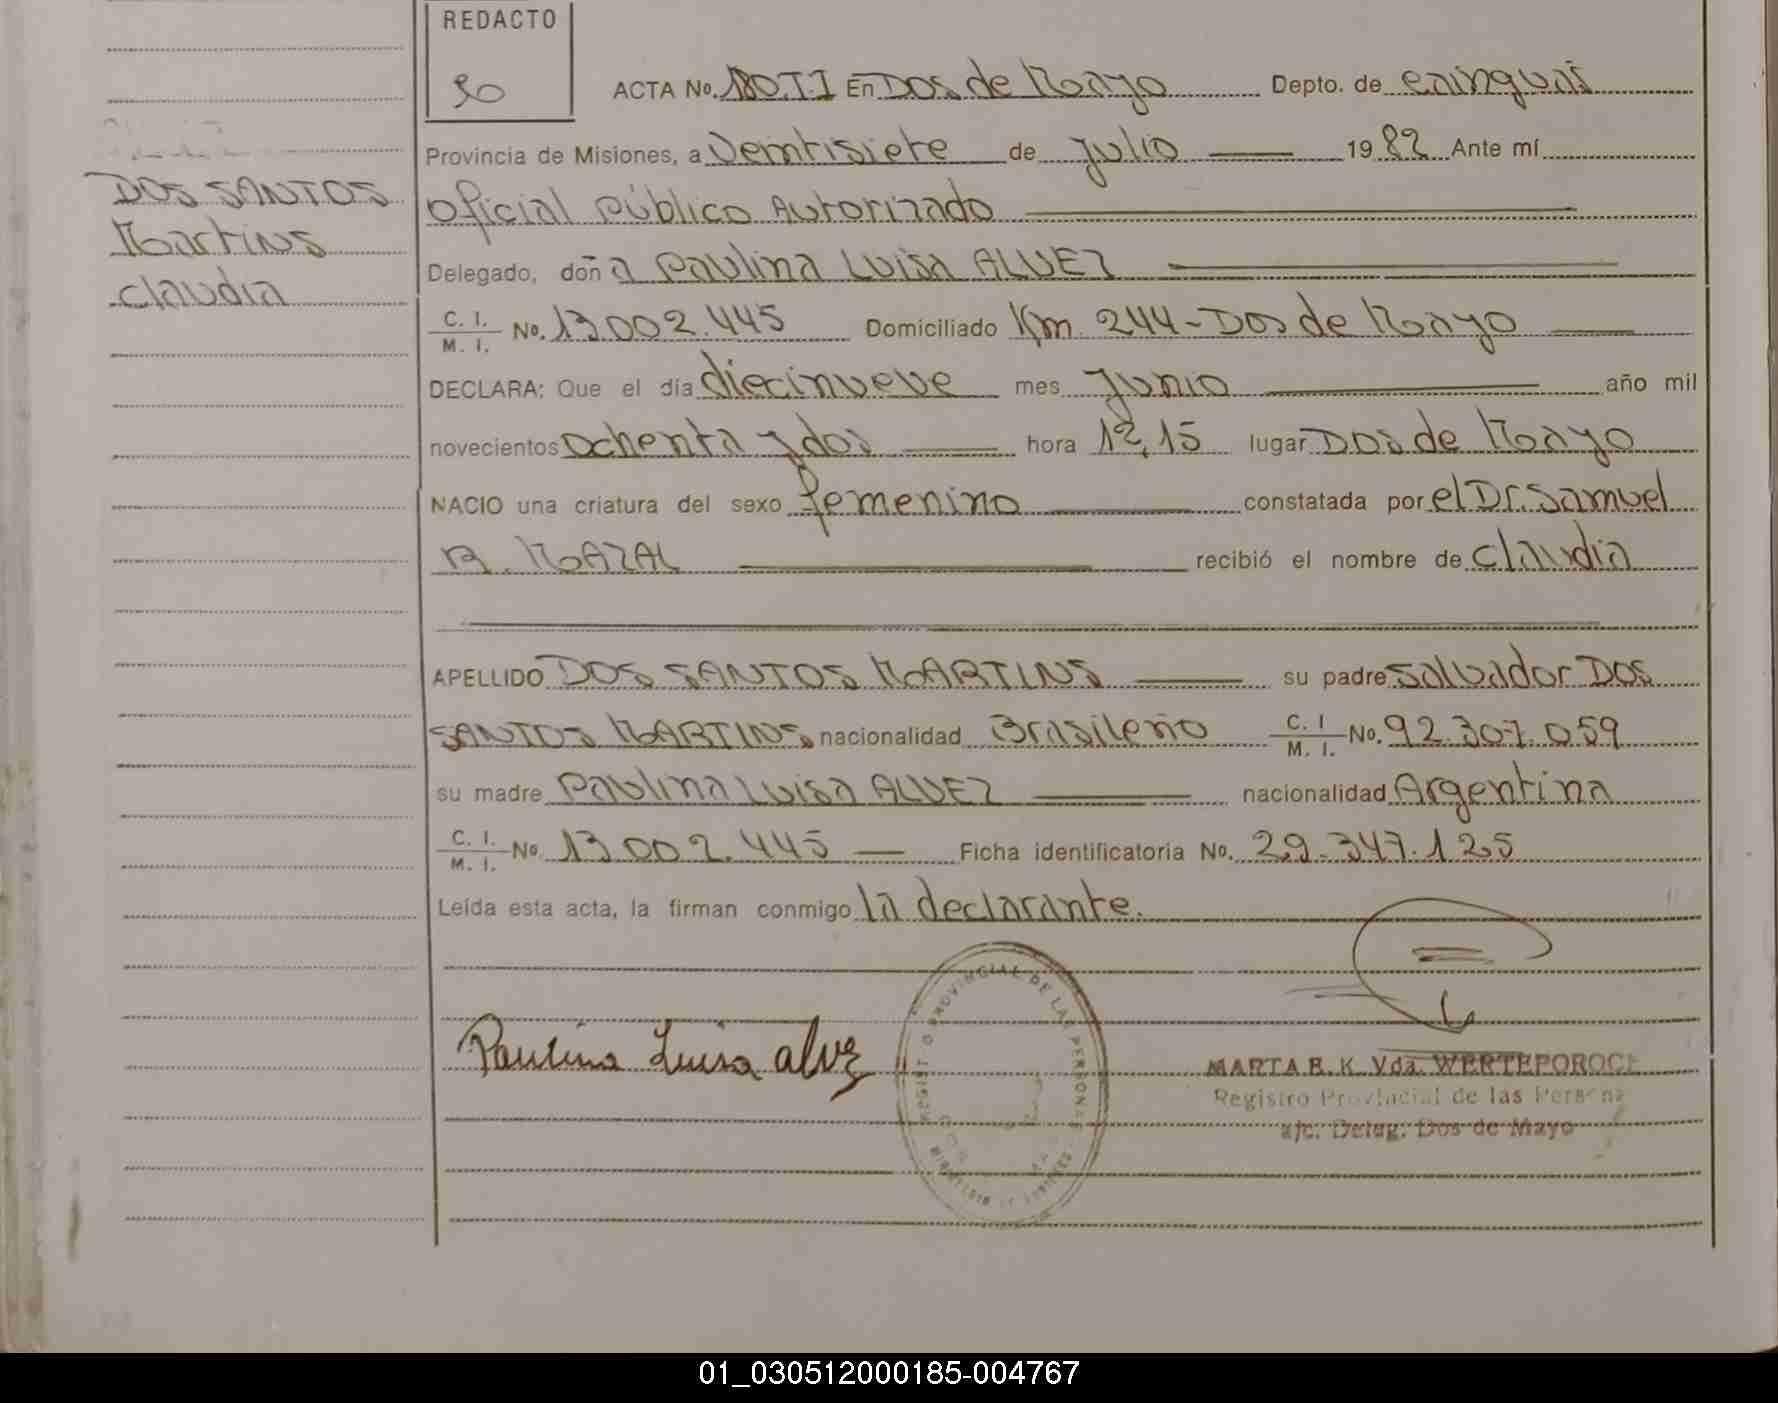 REDACTO
30
ACTA No. 180.TI En Dos de Mayo Depto. de Cainguás
Provincia de Misiones, a Veintisiete de Julio 1982 Ante mí
DOS SANTOS
Oficial Público Autorizado
Martins
Claudia
Delegado, doña Paulina Luisa ALVEZ
C. I. / M. I. No. 13.002.445 Domiciliado Km. 244 - Dos de Mayo
DECLARA: Que el día diecinueve mes Junio año mil
novecientos ochenta y dos hora 12,15 lugar Dos de Mayo
NACIO una criatura del sexo femenino constatada por el Dr. Samuel
MAZAL recibió el nombre de Claudia
APELLIDO DOS SANTOS MARTINS su padre Salvador DOS
SANTOS MARTINS nacionalidad Brasileño C. I / M. I. No. 92.307.059
su madre Paulina Luisa ALVEZ nacionalidad Argentina
C. I. / M. I. No. 13.002.445 Ficha identificatoria No. 29.347.125
Leída esta acta, la firman conmigo la declarante.
Paulina Luisa Alvez
PROVINCIAL DE LAS PERSONAS
MARTA R. K. Vda.
Registro Provincial de las Persona
a/c. Deleg. Dos de Mayo
01_030512000185-004767